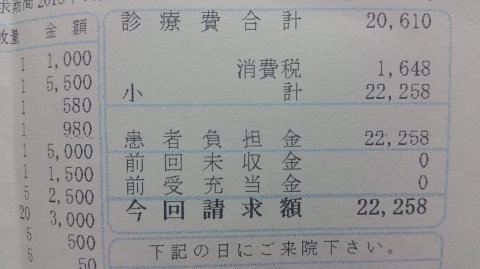 求期間2015
数量 金額
1 1,000
1 5,500
1 580
1 980
1 5,000
1 1,500
5 2,500
20 3,000
5 500
5 50
診療費合計 20,610
消費税 1,648
小計 22,258
患者負担金 22,258
前回未収金 0
前受充当金 0
今回請求額 22,258
下記の日にご来院下さい。